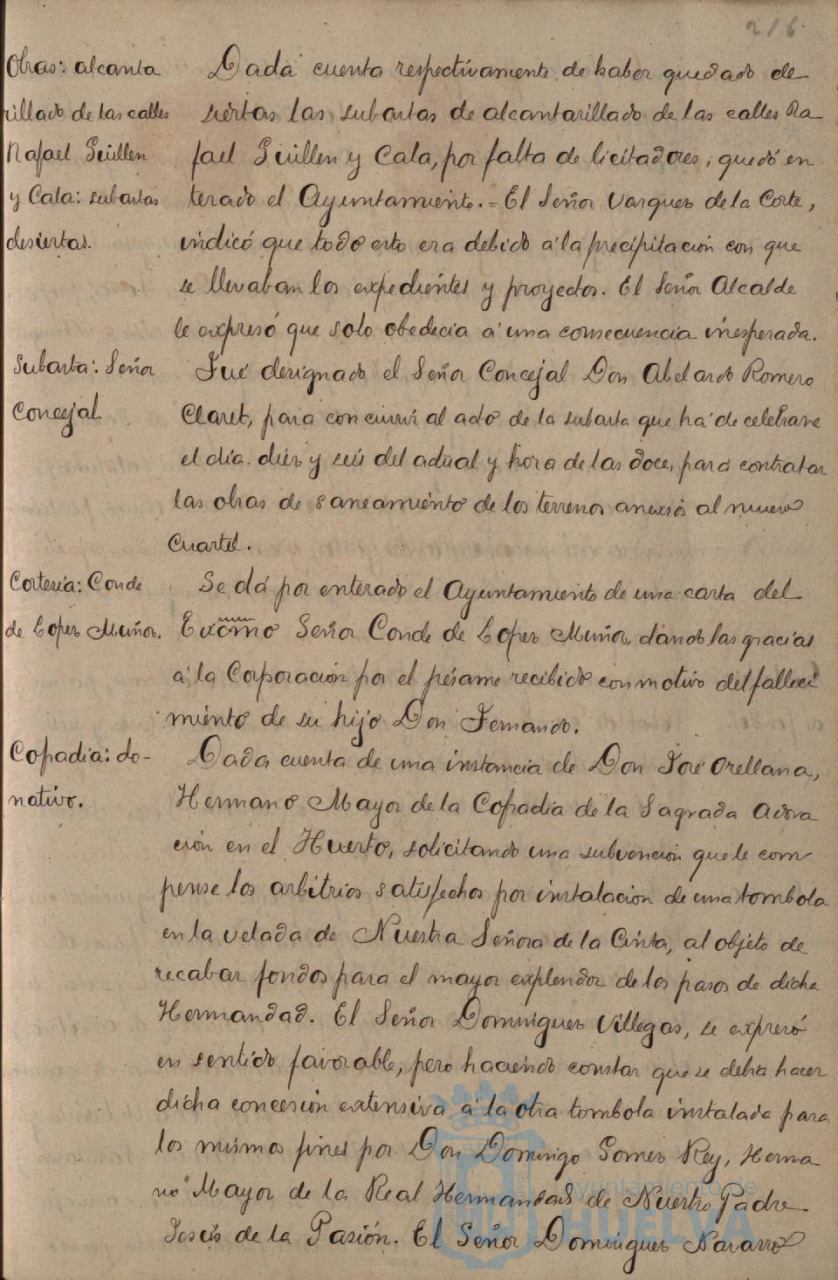 216
Obras: alcanta
rillado de las calles
Rafael Guillen
y Cala: subastas
desiertas.
Dada cuenta respectivamente de haber quedado de
siertas las subastas de alcantarillado de las calles Ra
fael Guillen y Cala, por falta de licitadores, quedó en
terado el Ayuntamiento.=El Señor Vazquez de la Corte,
indicó que todo esto era debido á la precipitación con que
se llevaban los expedientes y proyectos. El Señor Alcalde
le expresó que solo obedecia á una consecuencia inesperada.
Subasta: Señor
Concejal
Fué designado el Señor Concejal Don Abelardo Romero
Claret, para concurrir al acto de la subasta que há de celebrarse
el dia diez y seis del actual y hora de las doce, para contratar
las obras de saneamiento de los terrenos anexos al nuevo
Cuartel.
Cortesía: Conde
de Lopez Muñoz.
Se dá por enterado el Ayuntamiento de una carta del
Excmo Señor Conde de Lopez Muñoz, dando las gracias
á la Corporación por el pésame recibido con motivo del falleci
miento de su hijo Don Fernando.
Cofradia: do-
nativo.
Dada cuenta de una instancia de Don José Orellana,
Hermano Mayor de la Cofradia de la Sagrada Adora
ción en el Huerto, solicitando una subvención que le com-
pense los arbitrios satisfechos por instalacion de una tombola
en la velada de Nuestra Señora de la Cinta, al objeto de
recabar fondos para el mayor explendor de los pasos de dicha
Hermandad. El Señor Dominguez Villegas, se expresó
en sentido favorable, pero haciendo constar que se debia hacer
dicha concesión extensiva á la otra tombola instalada para
los mismos fines por Don Domingo Gomez Rey, Herma
no Mayor de la Real Hermandad de Nuestro Padre
Jesús de la Pasión. El Señor Dominguez Navarro
Ayuntamiento de
HUELVA